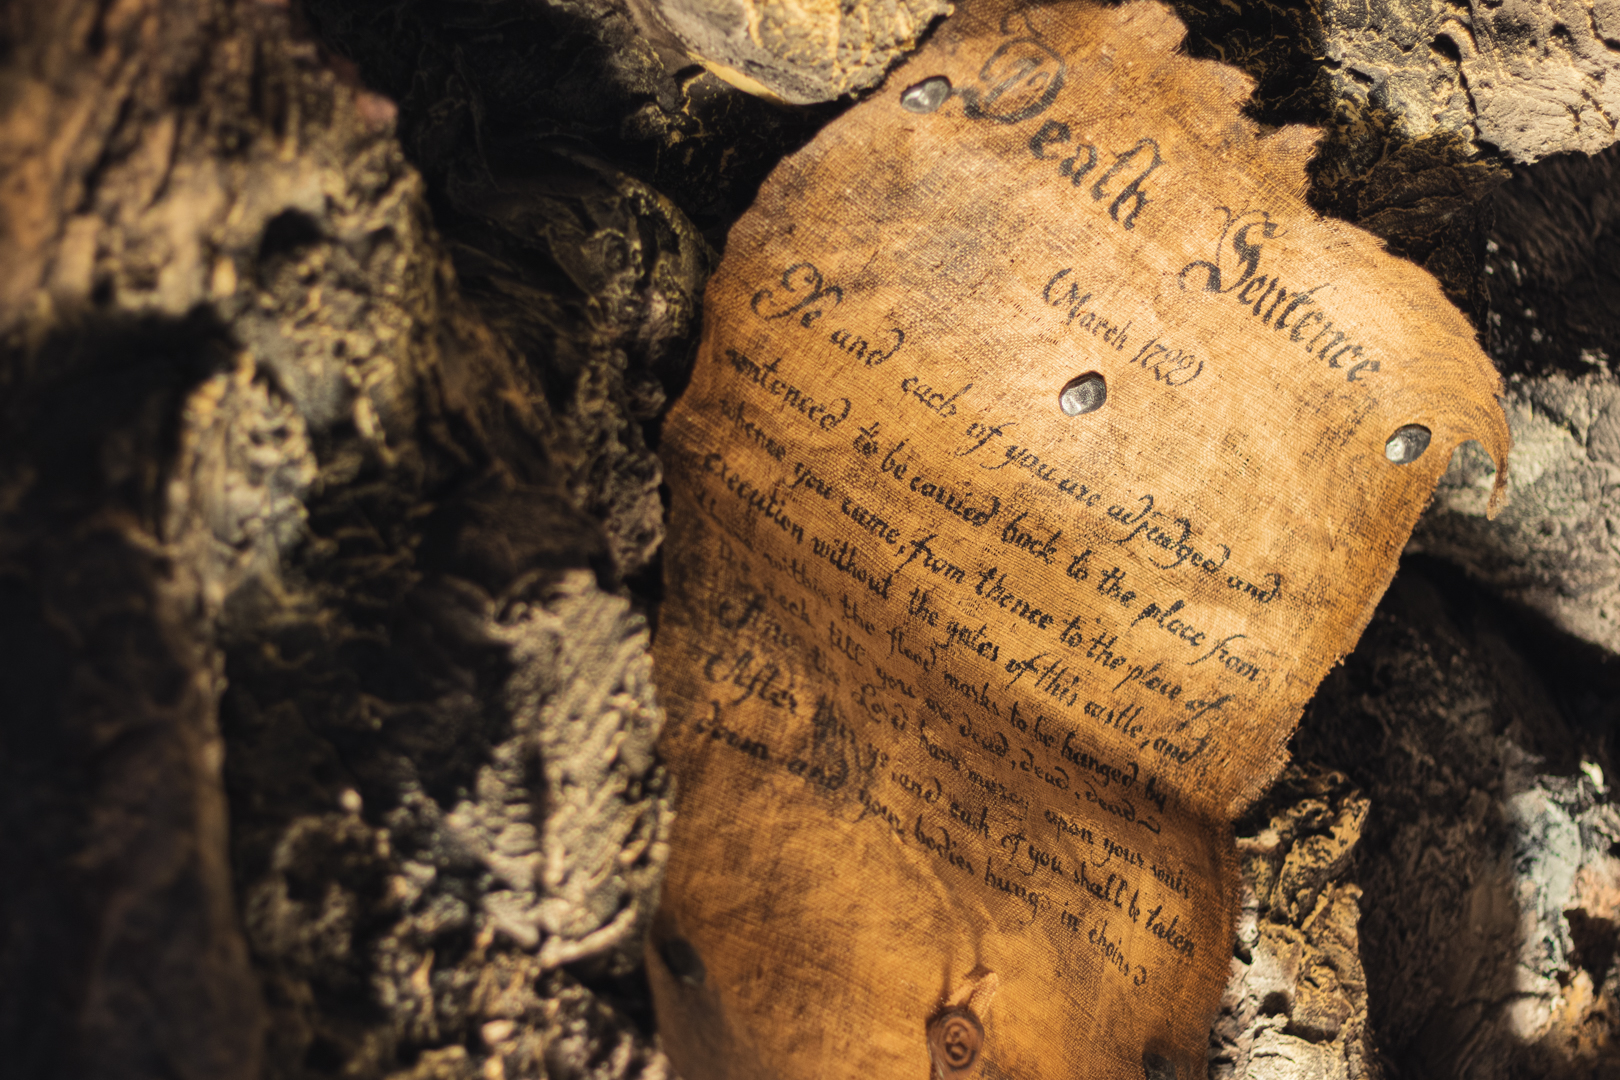 Death Sentence
March 1722
Ye and each of you are adjudged and
sentenced to be carried back to the place from
whence you came, from thence to the place of
execution without the gates of this castle, and
there within the flood marks to be hanged by
the neck till you are dead, dead, dead
Lord have mercy upon your souls
After this ye, and each of you shall be taken
down and your bodies hung in chains